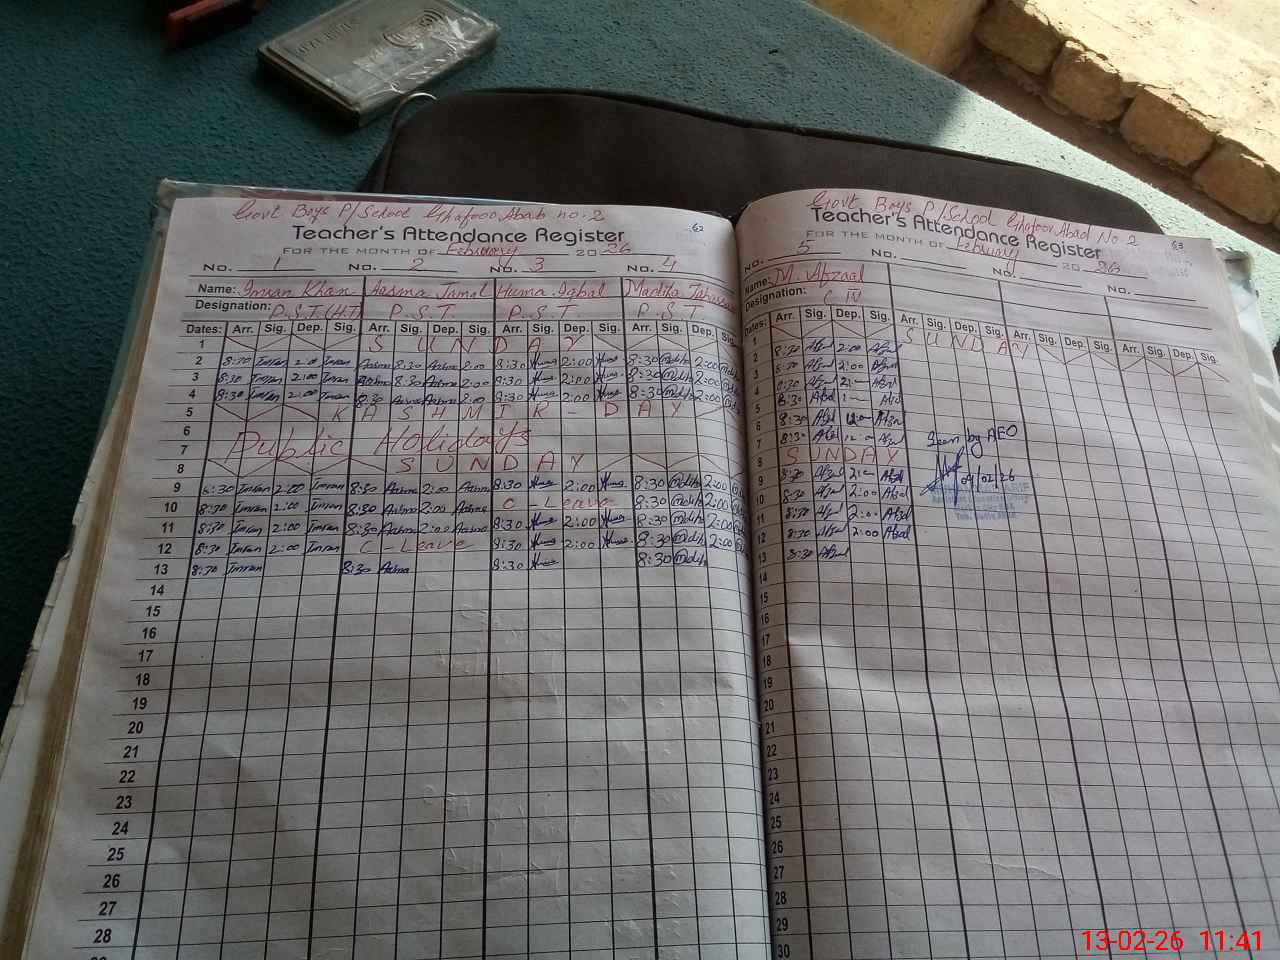 Govt Boys P/School Ghafoor Abab no.2
62
Teacher's Attendance Register
FOR THE MONTH OF February 2026
No. 1 No. 2 No. 3 No. 4
Name: Imran Khan Aasma Jamal Huma Iqbal Madiha
Designation: P.S.T.(H.T) P.S.T. P.S.T. P.S.T.
Dates: Arr. Sig. Dep. Sig. Arr. Sig. Dep. Sig. Arr. Sig. Dep. Sig. Arr. Sig. Dep. Sig.
1 SUNDAY
2 8:30 Imran 2:00 Imran Aasma 8:30 Aasma 2:00 8:30 Huma 2:00 Huma 8:30 Madiha 2:00
3 8:30 Imran 2:00 Imran Aasma 8:30 Aasma 2:00 8:30 Huma 2:00 Huma 8:30 Madiha 2:00
4 8:30 Imran 2:00 Imran 8:30 Aasma Aasma 2:00 8:30 Huma 2:00 Huma 8:30 Madiha 2:00
5 KASHMIR - DAY
6
7 Public Holidays
8 SUNDAY
9 8:30 Imran 2:00 Imran 8:30 Aasma 2:00 Aasma 8:30 Huma 2:00 Huma 8:30 Madiha 2:00
10 8:30 Imran 2:00 Imran 8:30 Aasma 2:00 Aasma C - Leave 8:30 Madiha 2:00
11 8:30 Imran 2:00 Imran 8:30 Aasma 2:00 Aasma 8:30 Huma 2:00 Huma 8:30 Madiha 2:00
12 8:30 Imran 2:00 Imran C - Leave 8:30 Huma 2:00 Huma 8:30 Madiha 2:00
13 8:30 Imran 8:30 Aasma 8:30 Huma 8:30 Madiha
14
15
16
17
18
19
20
21
22
23
24
25
26
27
28
Govt Boys P/School Ghafoor Abad No.2
63
Teacher's Attendance Register
FOR THE MONTH OF February 2026
No. 5 No. No. No.
Name: M. Afzaal
Designation: C IV
Dates: Arr. Sig. Dep. Sig. Arr. Sig. Dep. Sig. Arr. Sig. Dep. Sig. Arr. Sig. Dep. Sig.
1 SUNDAY
2 8:30 Afzal 2:00 Afzal
3 8:30 Afzal 2:00 Afzal
4 8:30 Afzal 2:— Afzal
5 8:30 Afzal
6 8:30 Afzal 12:— Afzal
7 8:30 Afzal 12:— Afzal
Seen by AEO
8 SUNDAY
9 8:30 Afzal 2:— Afzal
09/02/26
10 8:30 Afzal 2:00 Afzal
11 8:30 Afzal 2:00 Afzal
12 8:30 Afzal 2:00 Afzal
13 8:30 Afzal
14
15
16
17
18
19
20
21
22
23
24
25
26
27
28
29
30
13-02-26 11:41